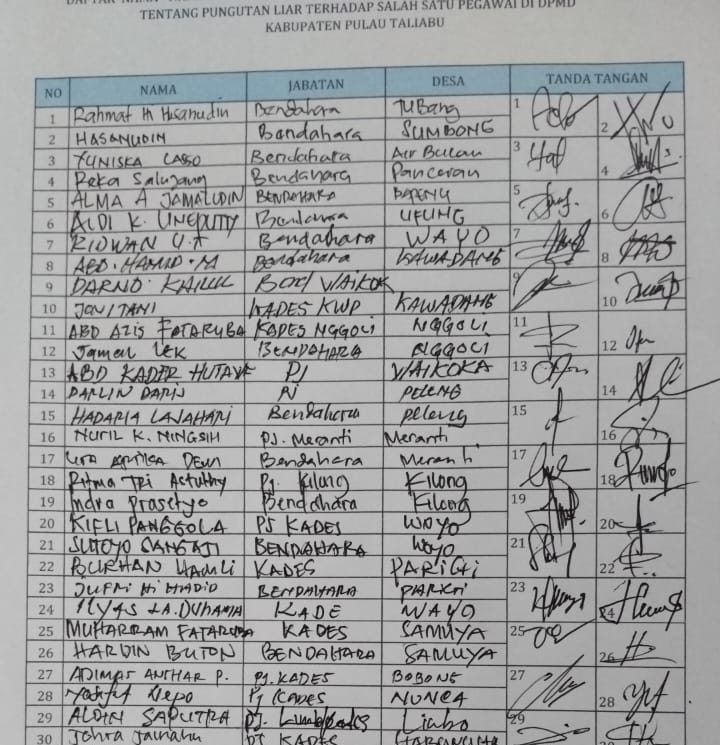 TENTANG PUNGUTAN LIAR TERHADAP SALAH SATU PEGAWAI DI DPMD
KABUPATEN PULAU TALIABU
NO NAMA JABATAN DESA TANDA TANGAN
1 Rahmat H Husanudin Bendahara TUBang 1
2 HASANUDIN Bendahara SUMBONG 2
3 YUNISKA CASSO Bendahara Air Bulan 3
4 Reka Salujang Bendahara Panceran 4
5 ALMA A JAMALUDIN BENDAHARA 5
6 ALDI K. UNEPUTTY Bendahara UFUNG 6
7 RIDWAN U.A Bendahara WAYO 7
8 ABD. HAMID. M Bendahara KAWADANG 8
9 DARNO. Bend WAIKOK 9
10 JONI TANI KADES KWP KAWADANG 10
11 ABD AZIS FATARUBA KADES NGGOLI NGGOLI 11
12 Jamal BENDAHARA NGGOLI 12
13 ABD KADER PJ WAIKOKA 13
14 DARLIN DARIS PJ PELENG 14
15 HADARIA LAJAHARI Bendahara peleng 15
16 NURIL K. NINGSIH PJ. Meranti Meranti 16
17 DEWI Bendahara Meranti 17
18 Ritma Tri Astutty Pj. Kilong Kilong 18
19 Indra Prasetyo Bendahara Kilong 19
20 KIFLI PANGGOLA PJ KADES WAYO 20
21 SUTOYO SANGAJI BENDAHARA Wayo 21
22 BURHAN HAMLI KADES PARIGI 22
23 JUFRI Hi HADID BENDAHARA PARIGI 23
24 ILYAS LA. DUHAMIA KADE WAYO 24
25 MUHARRAM FATARUBA KADES SAMUYA 25
26 HARDIN BUTON BENDAHARA SAMUYA 26
27 ADIMAS ANTHAR P. Pj. KADES BOBONG 27
28 Depo Pj KADES NUNCA 28
29 ALDIN SAPUTRA PJ. Limbo 29
30 Johra Jainahu PJ KADES